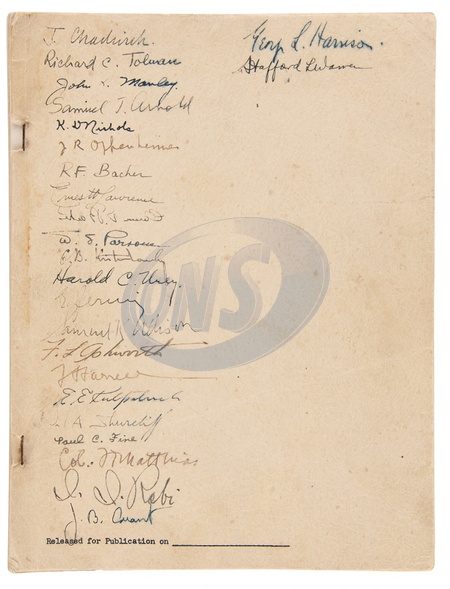 J. Chadwick.
Richard C. Tolman
John H. Manley.
Samuel T. Arnold
K. D Nichols
J R Oppenheimer
R.F. Bacher
Ernest O Lawrence
W. S. Parsons
Harold C. Urey.
E Fermi
Samuel K Allison
F. L Ashworth
E. E Kirkpatrick
W A Shurcliff
Paul C. Fine
Col. F Matthias
I. I. Rabi
J. B. Conant
George L. Harrison.
Stafford L Warren
ONS
Released for Publication on